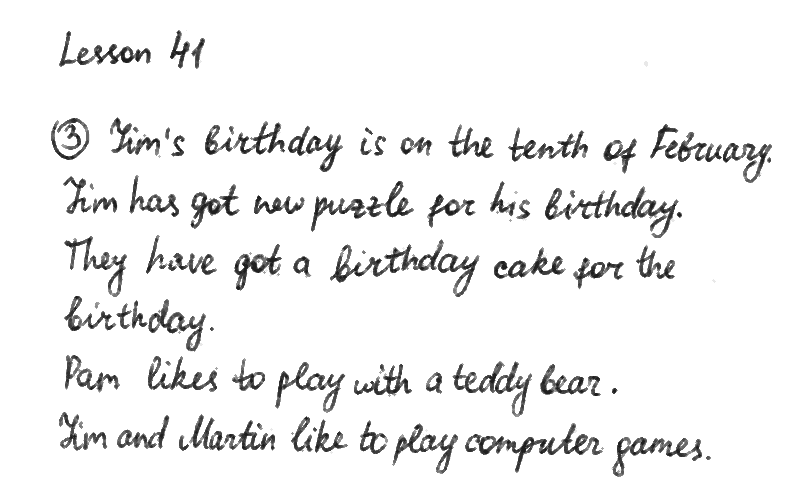 Lesson 41
③ Jim's birthday is on the tenth of February.
Jim has got new puzzle for his birthday.
They have got a birthday cake for the
birthday.
Pam likes to play with a teddy bear.
Jim and Martin like to play computer games.